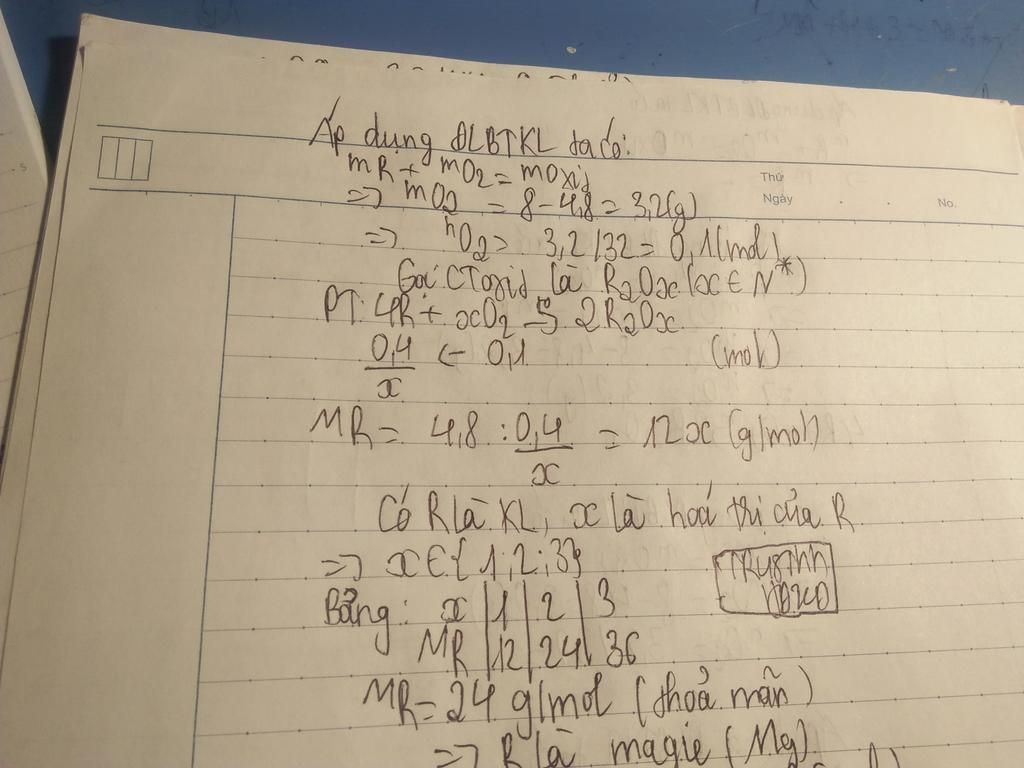 Thứ
Ngày
No.
Áp dụng ĐLBTKL ta có:
mR + mO2 = mOxid
=> mO2 = 8-4,8 = 3,2(g)
=> nO2 = 3,2/32 = 0,1(mol)
Gọi CToxid là R2Ox (x∈N*)
PT: 4R + xO2 → 2R2Ox
0,4/x ← 0,1 (mol)
MR = 4,8 : 0,4/x = 12x (g/mol)
Có R là KL, x là hoá trị của R
=> x∈{1;2;3}
Bảng: x | 1 | 2 | 3
MR | 12 | 24 | 36
MR = 24 g/mol (thoả mãn)
=> R là magie (Mg)